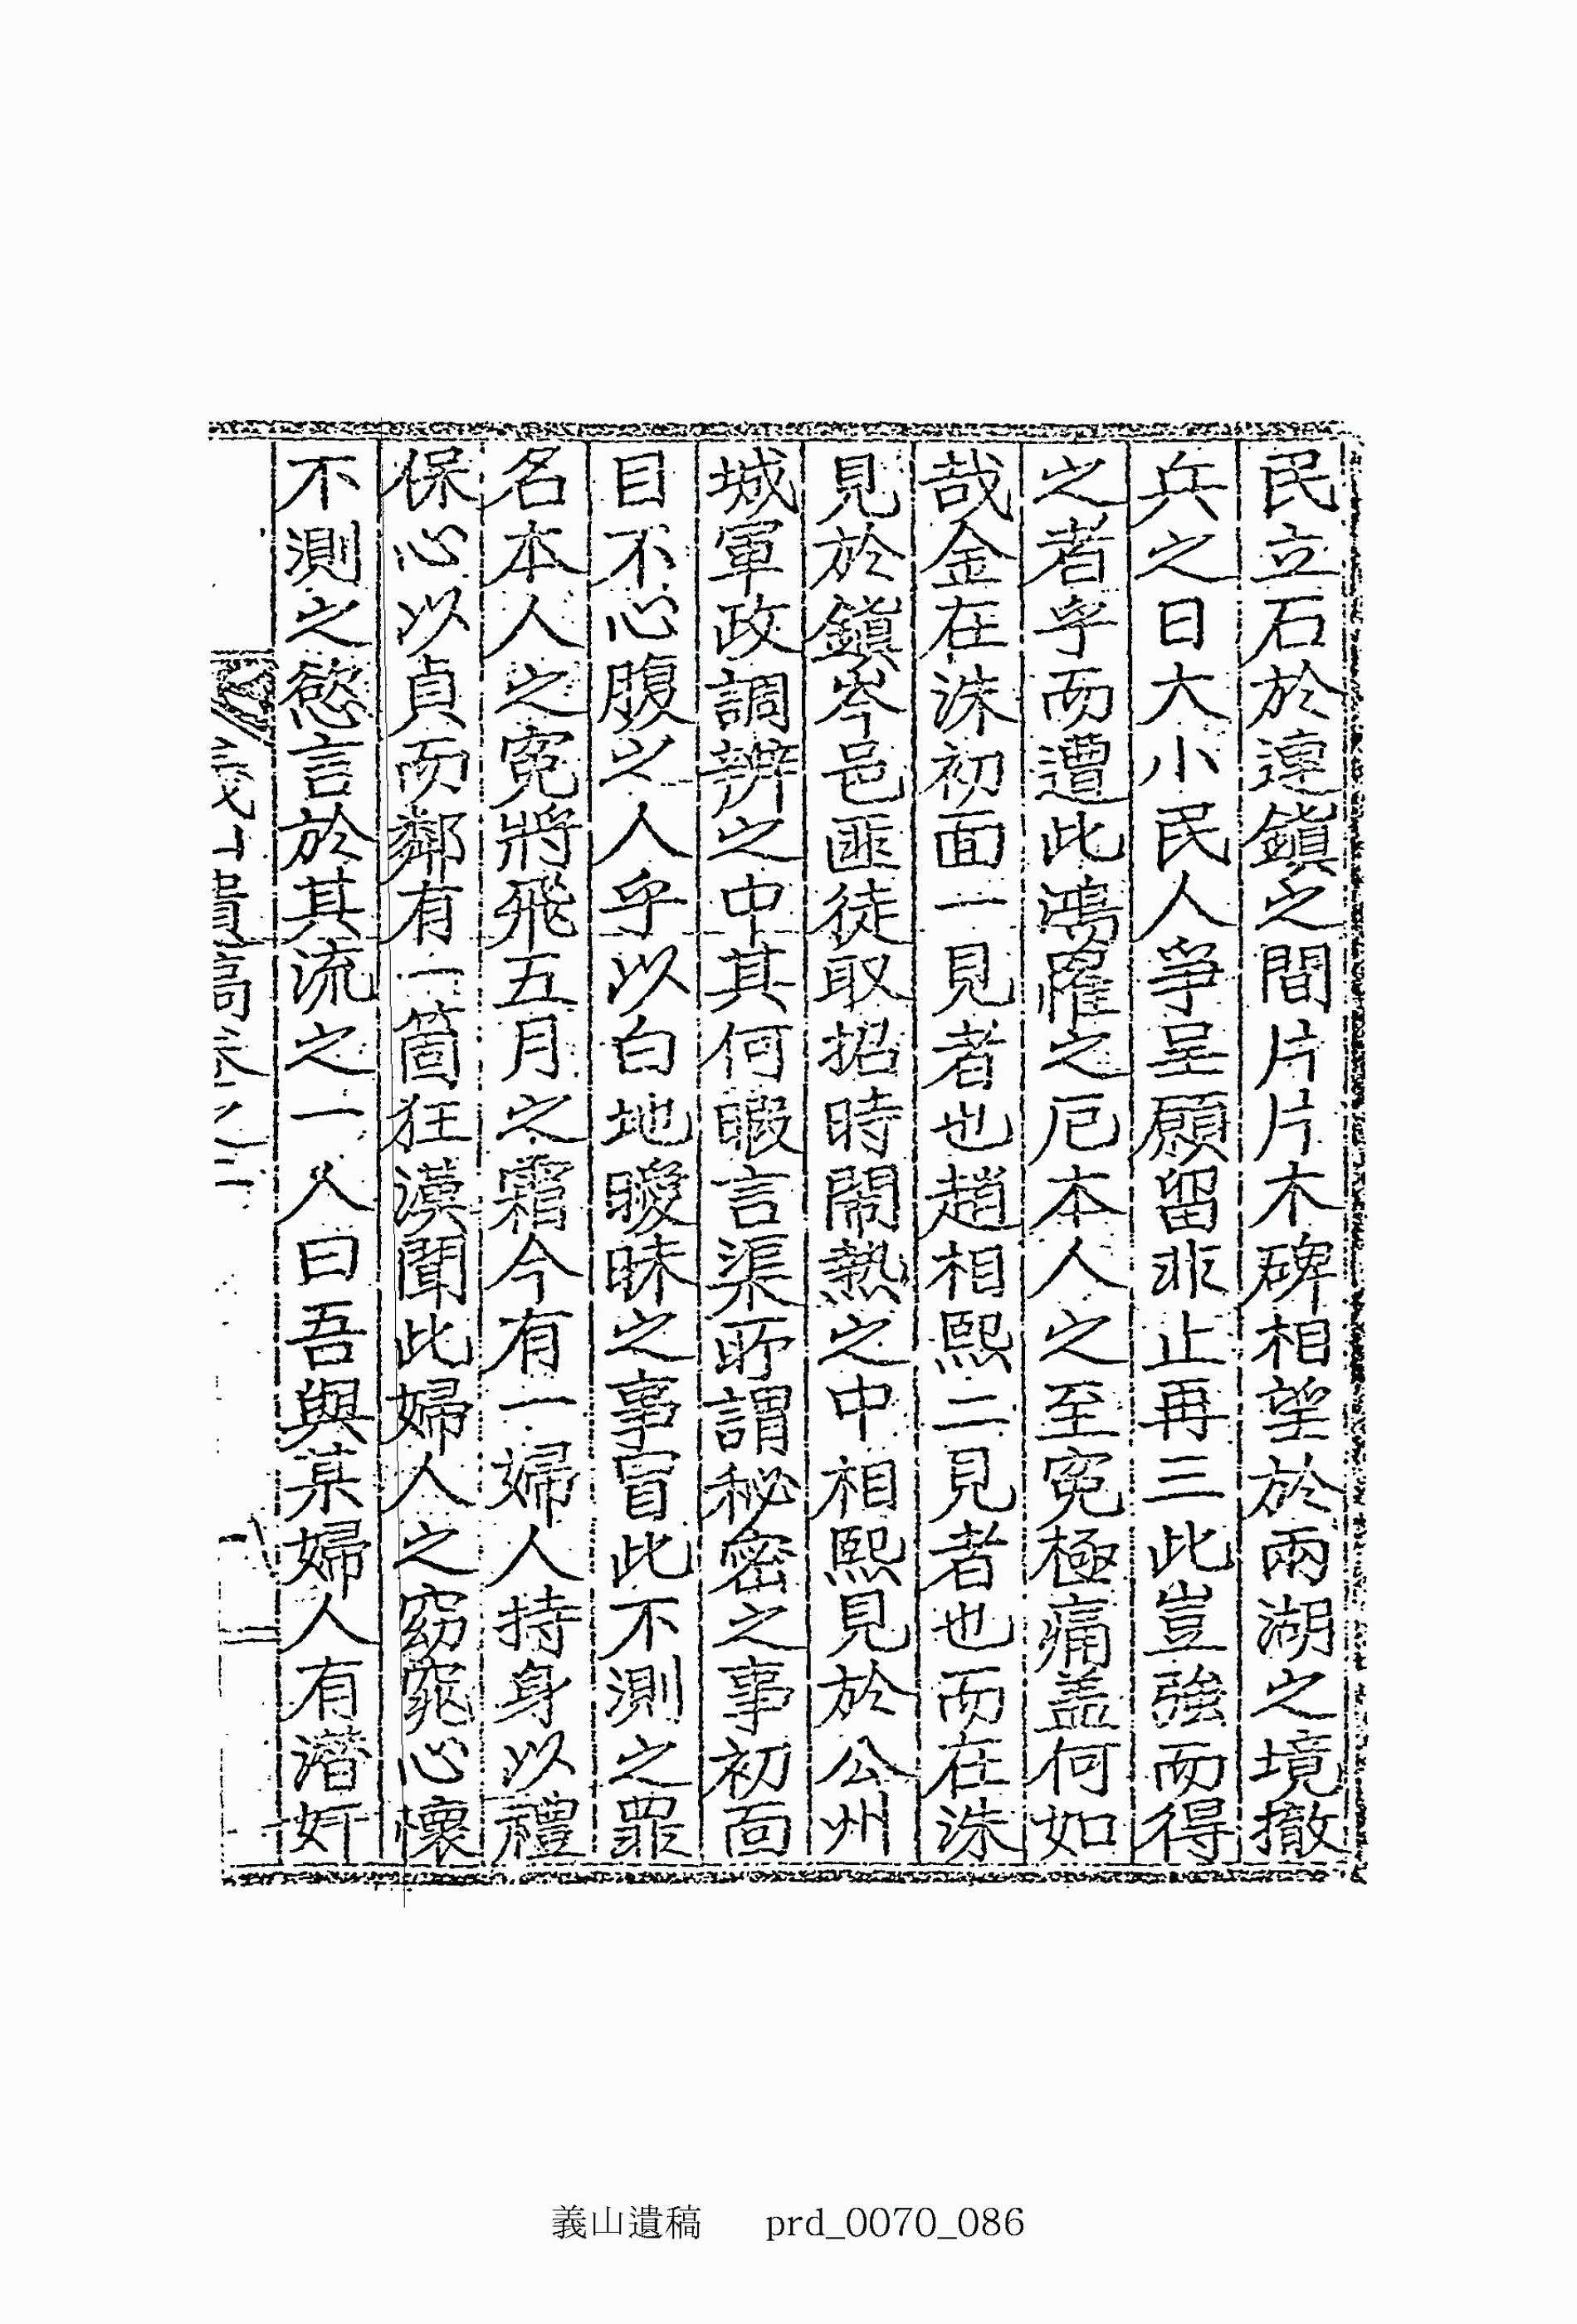 民立石於連鎭之間片片木碑相望於兩湖之境撤
兵之日大小民人爭呈願留非止再三此豈強而得
之者乎而遭此鴻罹之厄本人之至寃極痛盖何如
哉金在洙初面一見者也趙相熙二見者也而在洙
見於鎭岑邑匪徒取招時閙熱之中相熙見於公州
城軍政調辦之中其何暇言渠所謂秘密之事初面
目不心腹之人乎以白地曖昧之事冒此不測之罪
名本人之寃將飛五月之霜今有一婦人持身以禮
保心以貞而鄰有一箇狂漢聞此婦人之窈窕心懷
不測之慾言於其流之一人曰吾與某婦人有潜奸
義山遺稿卷之二
義山遺稿 prd_0070_086